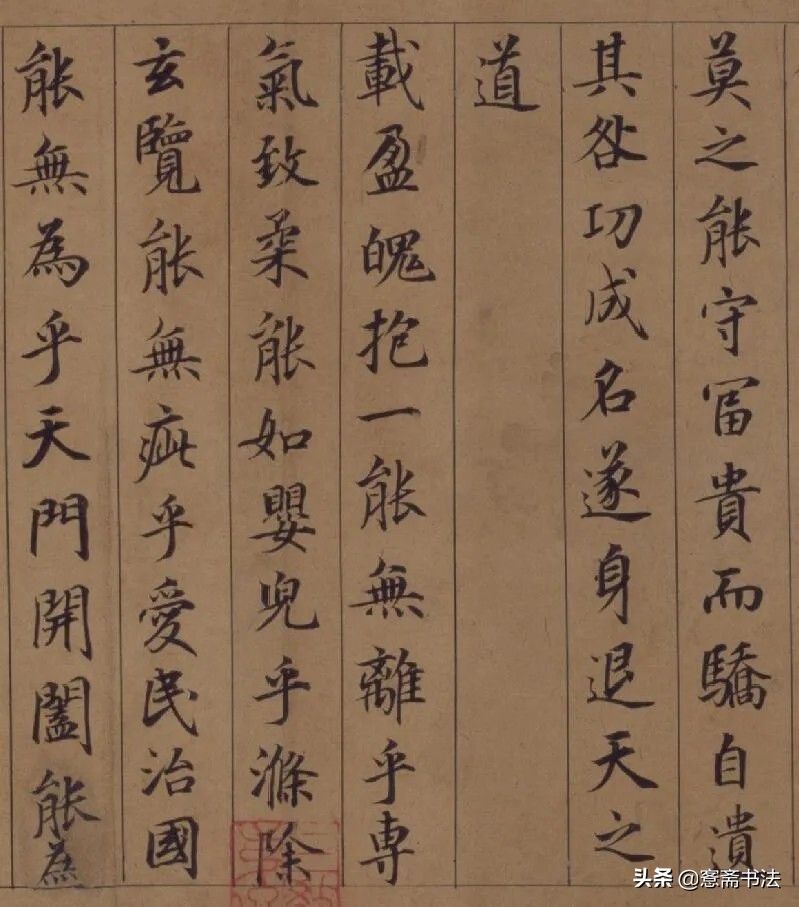 莫之能守冨貴而驕自遺
其咎功成名遂身退天之
道
載盈魄抱一能無離乎専
氣致柔能如嬰兒乎滌除
玄覽能無疵乎愛民治國
能無為乎天門開闔能為
头条 @愙斋书法